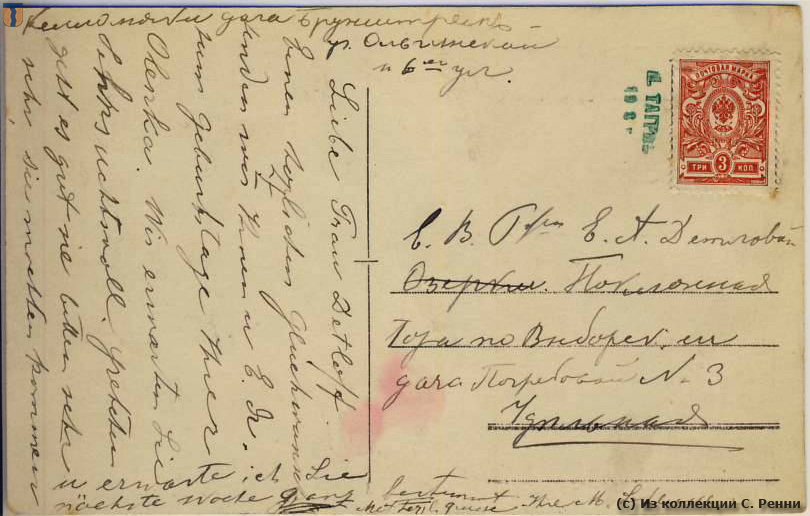 Келломяки дача Брунштрем
уг. Ольгинской
и 6ой ул.
Liebe Frau Detloff
Einen herzlichen Glückwunsch
senden wir Ihnen u E. A.
zum Geburtstage Ihrer
Olenka. Wir erwarten Sie
Sehnsuchtsvoll.
geht es gut sie bitten sehr
sehr, sie möchten kommen
u erwarte ich Sie
nächste Woche ganz bestimmt
Ihre M.
ПОЧТОВАЯ МАРКА
3
ТРИ КОП
Е. В. Г-жѣ Е. А. Детловой
Озерки. Поклонная
Гора по Выборгск. ш
дача Погребовой N 3
Удѣльная
(c) Из коллекции С. Ренни